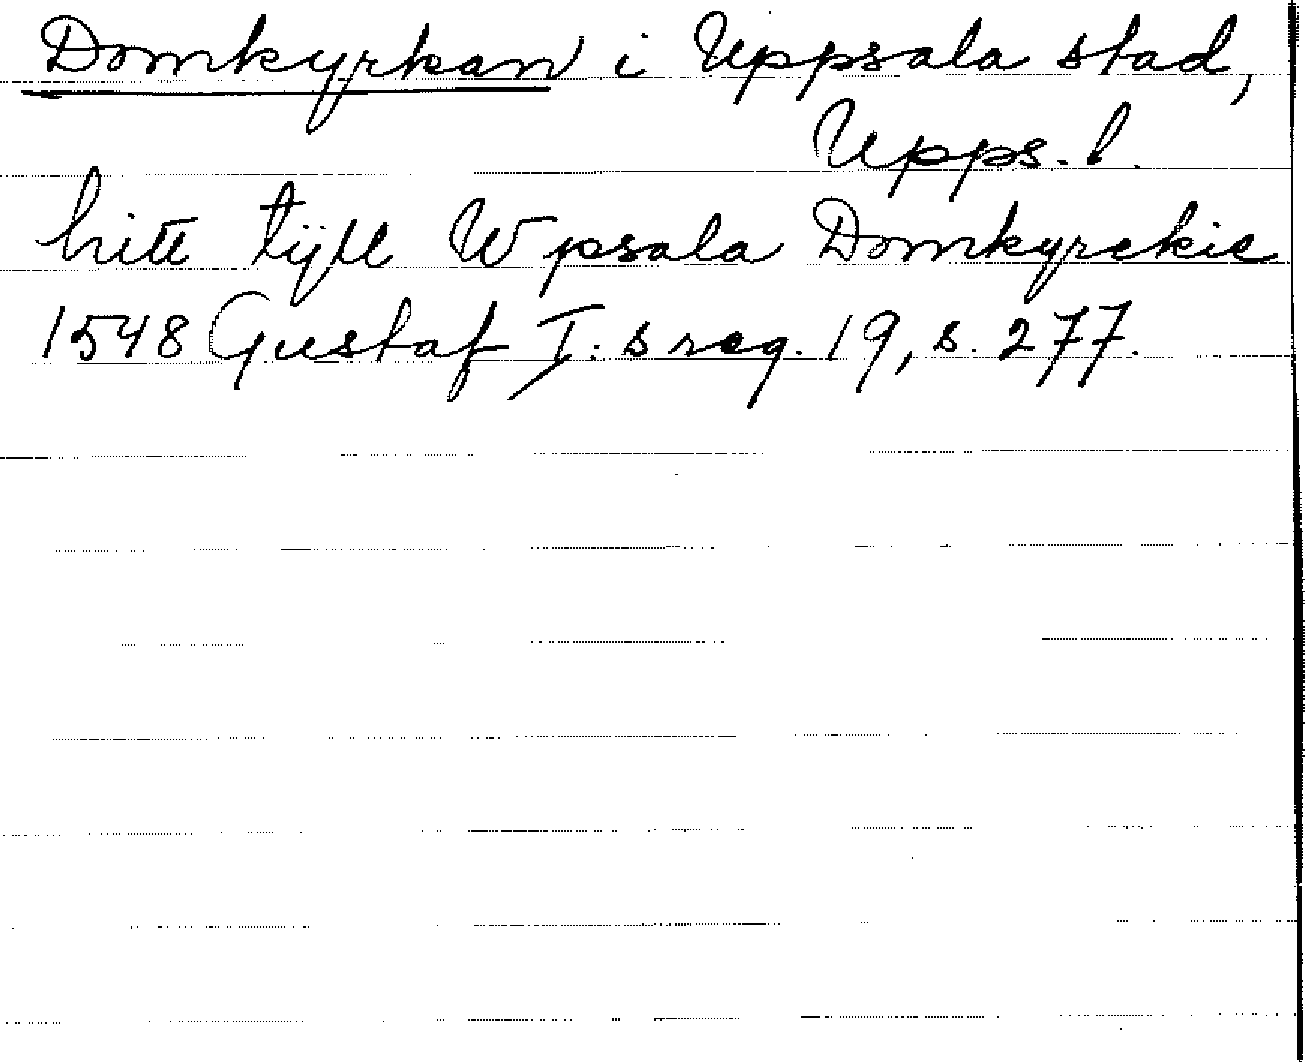 Domkyrkan i Uppsala stad,
Upps. l.
hitt tijll Wpsala Domkyrckie
1548 Gustaf I:s reg. 19, s. 277.